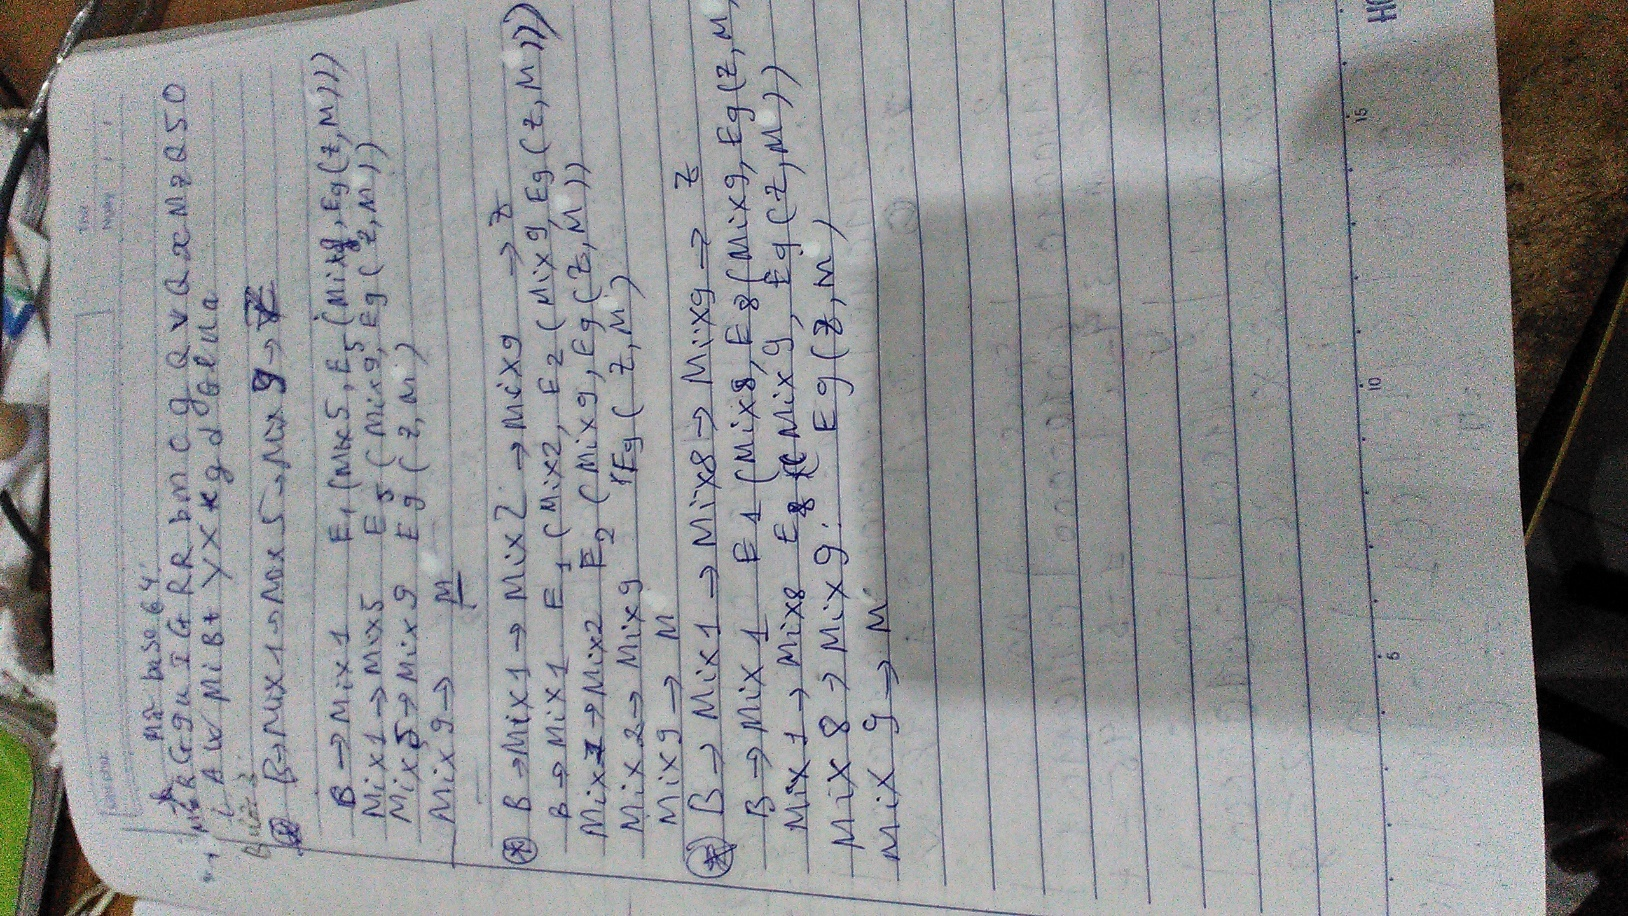 Mã base 64
R G g u I G R R b m c g Q v Q x M z Q 5 0
A W M i B t Y X x g d G l u a
Bài 3:
B → Mix 1 → Mix 5 → Mix 9 → Z
B → Mix 1 E1 (Mix 5, E5 (Mix 9, E9 (Z, M)))
Mix 1 → Mix 5 E5 (Mix 9, E9 (Z, M))
Mix 5 → Mix 9 E9 (Z, M)
Mix 9 → M
B → Mix 1 → Mix 2 → Mix 9 → Z
B → Mix 1 E1 (Mix 2, E2 (Mix 9, E9 (Z, M)))
Mix 1 → Mix 2 E2 (Mix 9, E9 (Z, M))
Mix 2 → Mix 9 E9 (Z, M)
Mix 9 → M
B → Mix 1 → Mix 8 → Mix 9 → Z
B → Mix 1 E1 (Mix 8, E8 (Mix 9, E9 (Z, M
Mix 1 → Mix 8 E8 (Mix 9, E9 (Z, M))
Mix 8 → Mix 9: E9 (Z, M)
Mix 9 → M
5 10 15
HO